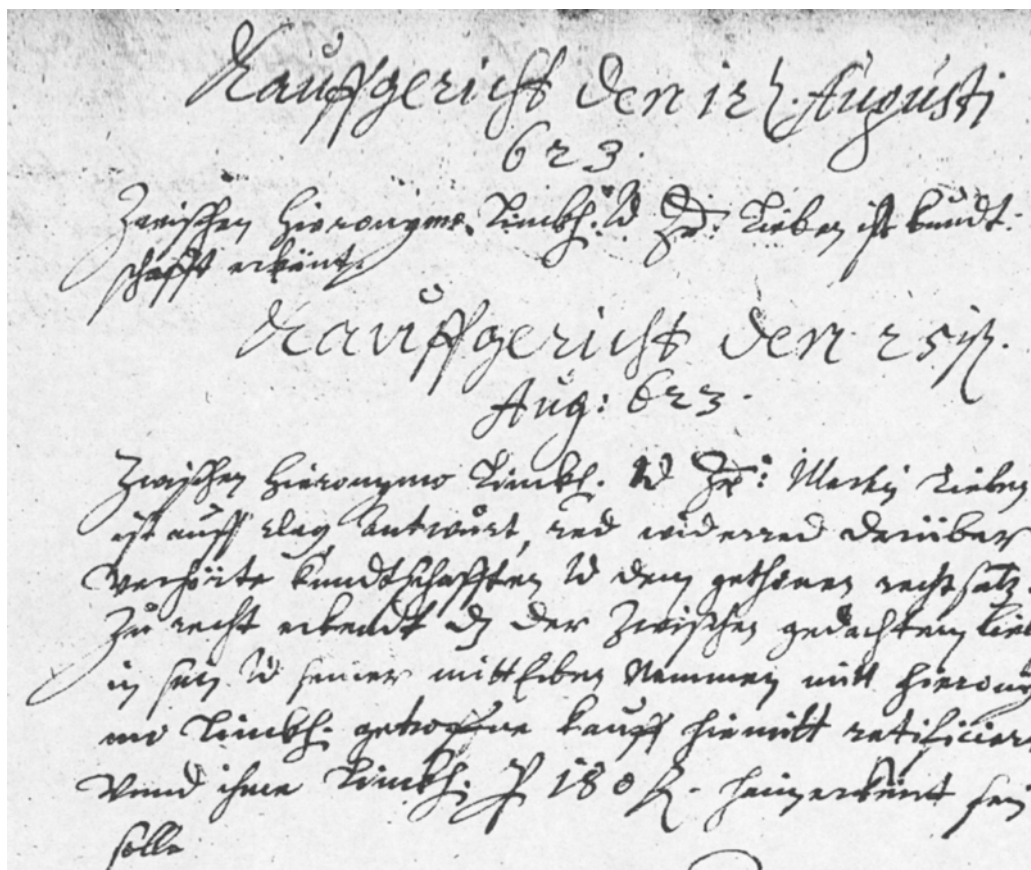 Kauffgericht den 12. Augusti
623.
Zwischen Hieronymo Linckh. Vd Hr: Lieben ist kundt-
schafft erkent.
Kauffgericht den 25.
Aug: 623.
Zwischen Hieronymo Linckh. Vd Hr: Lieben
ist auff clag antwurt, red widerred darüber
Verhörte kundtschafften Vd dem gethonen rechtsatz
Zu recht erkendt dz der Zwischen gedachtem Lieb
in sein Vd seiner mitt Erben Nammen mitt Hierony
mo Linckh. getroffne kauff hiemitt ratificiert
Vnnd ihme Linckh. P 180 fl. heimerkent sein
solle